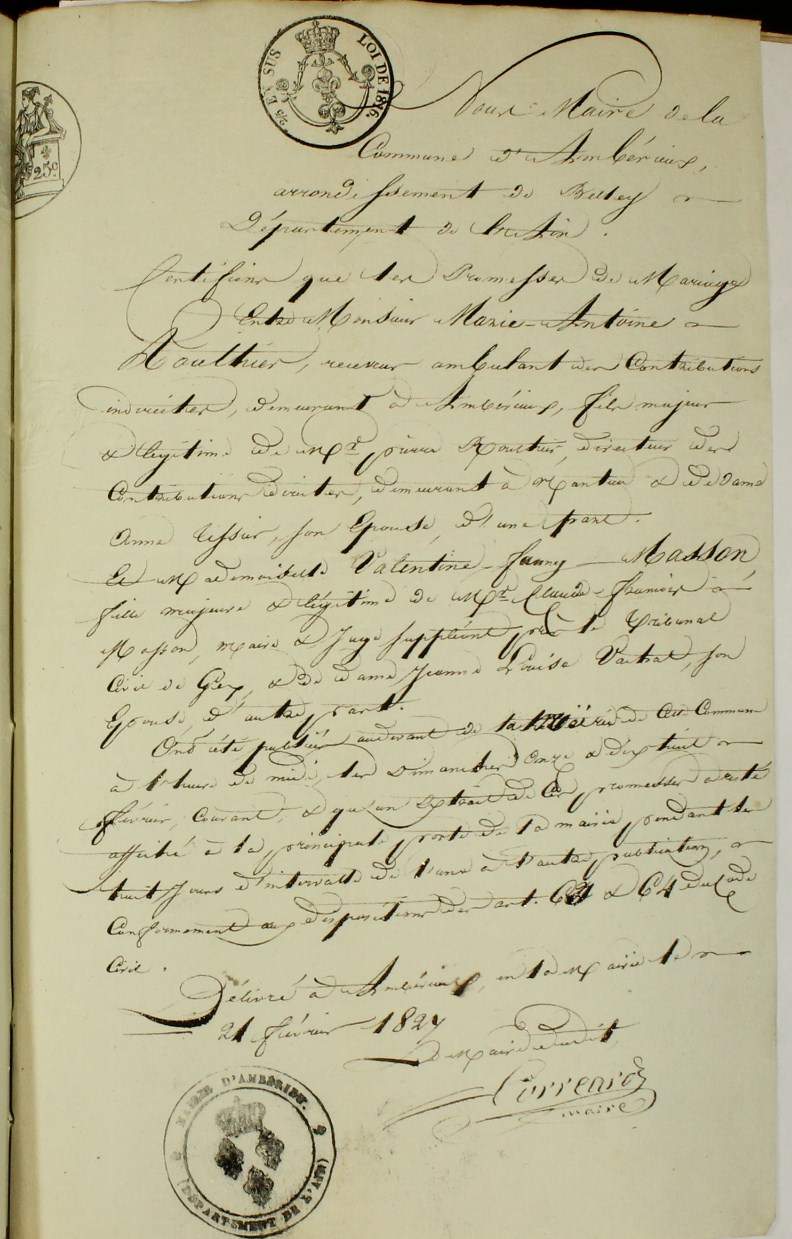 25 EN SUS
LOI DE 1816.
25c
Nous Maire de la
Commune d'Ambérieux,
arrondissement de Belley
Département de l'Ain.
Certifions que les Promesses de Mariage
Entre Monsieur Marie-Antoine
Roulthier, receveur ambulant des Contributions
indirectes, demeurant à Ambérieux, fils majeur
& légitime de Mr. pierre directeur des
Contributions directes, demeurant à Nantua & de dame
Anne Tessier, son Epouse, d'une part.
Et Mademoiselle Valentine-fanny Masson
fille majeure & légitime de Mr. Claude-
Masson, maire & Juge suppléant près le Tribunal
Civil de Gex, & de dame Jeanne Louise son
Epouse, d'autre part.
Ont été publiées audevant de la Mairie de cette Commune
à l'heure de midi, les Dimanches onze & dix huit
février, courant, & qu'un Extrait de ces promesses a resté
affiché à la principale porte de la mairie pendant les
huit Jours d'intervalle de l'une à l'autre publication,
Conformement aux dispositions des art. 63 & 64 du Code
Civil.
Délivré à Ambérieux, en la Mairie le
21 février 1827
Le Maire dudit
Correard
maire
MAIRIE D'AMBÉRIEU.
(DÉPARTEMENT DE L'AIN)